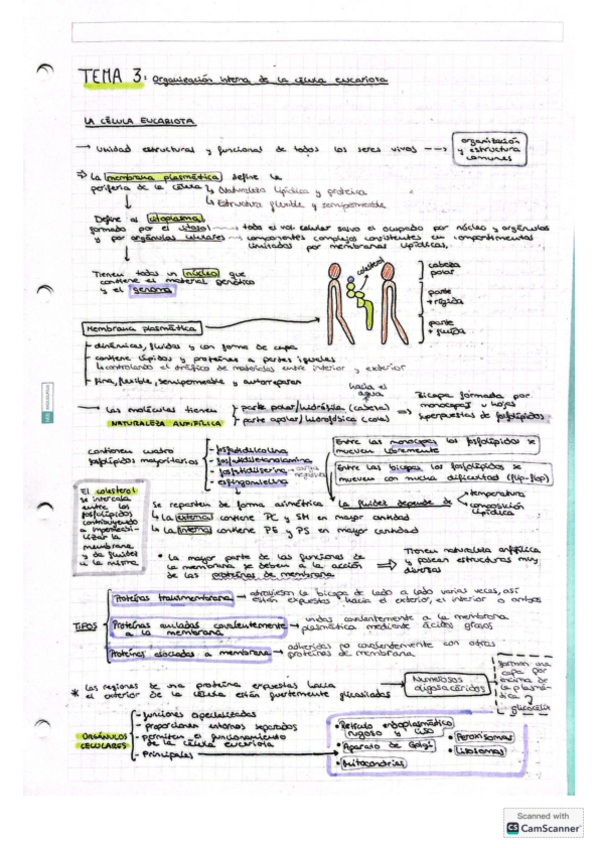 TEMA 3: Organización interna de la célula eucariota
LA CÉLULA EUCARIOTA
→ Unidad estructural y funcional de todos los seres vivos --→
organización
y estructura
comunes
⇒ La membrana plasmática define la
periferia de la célula
↳ Naturaleza lipídica y proteica
↳ Estructura flexible y semipermeable
Define al citoplasma,
formado por el citosol → todo el vol celular salvo el ocupado por núcleo y orgánulos
y por orgánulos celulares → componentes complejos consistentes en compartimentos
limitados por membranas lipídicas.
Tienen todas un núcleo que
contiene el material genético
y el genoma
colesterol
cabeza
polar
parte
+ rígida
parte
+ fluida
Membrana plasmática
- dinámicas, fluidas y con forma de capa
- contiene lípidos y proteínas a partes iguales
↳ controlando el tráfico de moléculas entre interior y exterior
- fina, flexible, semipermeable y autorreparar
hacia el
agua
→ Las moléculas tienen
NATURALEZA ANFIFÍLICA
parte polar/hidrófila (cabeza)
parte apolar/hidrofóbica (cola)
⇒ Bicapa formada por
monocapas u hojas
superpuestas de fosfolípidos
contienen cuatro
fosfolípidos mayoritarios
- fosfatidilcolina
- fosfatidiletanolamina
- fosfatidilserina → carga negativa
- esfingomielina
Entre las monocapas los fosfolípidos se
mueven libremente
Entre las bicapas los fosfolípidos se
mueven con mucha dificultad (flip-flop)
El colesterol
se intercala
entre los
fosfolípidos
contribuyendo
a impermeabi-
lizar la
membrana
y da fluidez
a la misma
Se reparten de forma asimétrica
↳ La externa contiene PC y SM en mayor cantidad
↳ La interna contiene PE y PS en mayor cantidad
La fluidez depende de
→ temperatura
→ composición
lipídica
• La mayor parte de las funciones de
la membrana se deben a la acción
de las proteínas de membrana
⇒ Tienen naturaleza anfifílica
y poseen estructuras muy
diversas
TIPOS
Proteínas transmembrana → atraviesan la bicapa de lado a lado varias veces, así
están expuestas hacia el exterior, el interior o ambos
Proteínas ancladas covalentemente
a la membrana
→ unidas covalentemente a la membrana
plasmática mediante ácidos grasos
Proteínas asociadas a membrana → adheridas no covalentemente con otras
proteínas de membrana
* Las regiones de una proteína expuestas hacia
el exterior de la célula están fuertemente glicosiladas
Numerosos
oligosacáridos
forman una
capa por
encima de
la plasmá-
tica
glicocálix
ORGÁNULOS
CELULARES
- funciones especializadas
- proporcionan entornos separados
- permiten el funcionamiento
de la célula eucariota
- Principales
• Retículo endoplasmático
rugoso y liso
• Aparato de Golgi
• Mitocondrias
• Peroxisomas
• Lisosomas
Scanned with
CS CamScanner